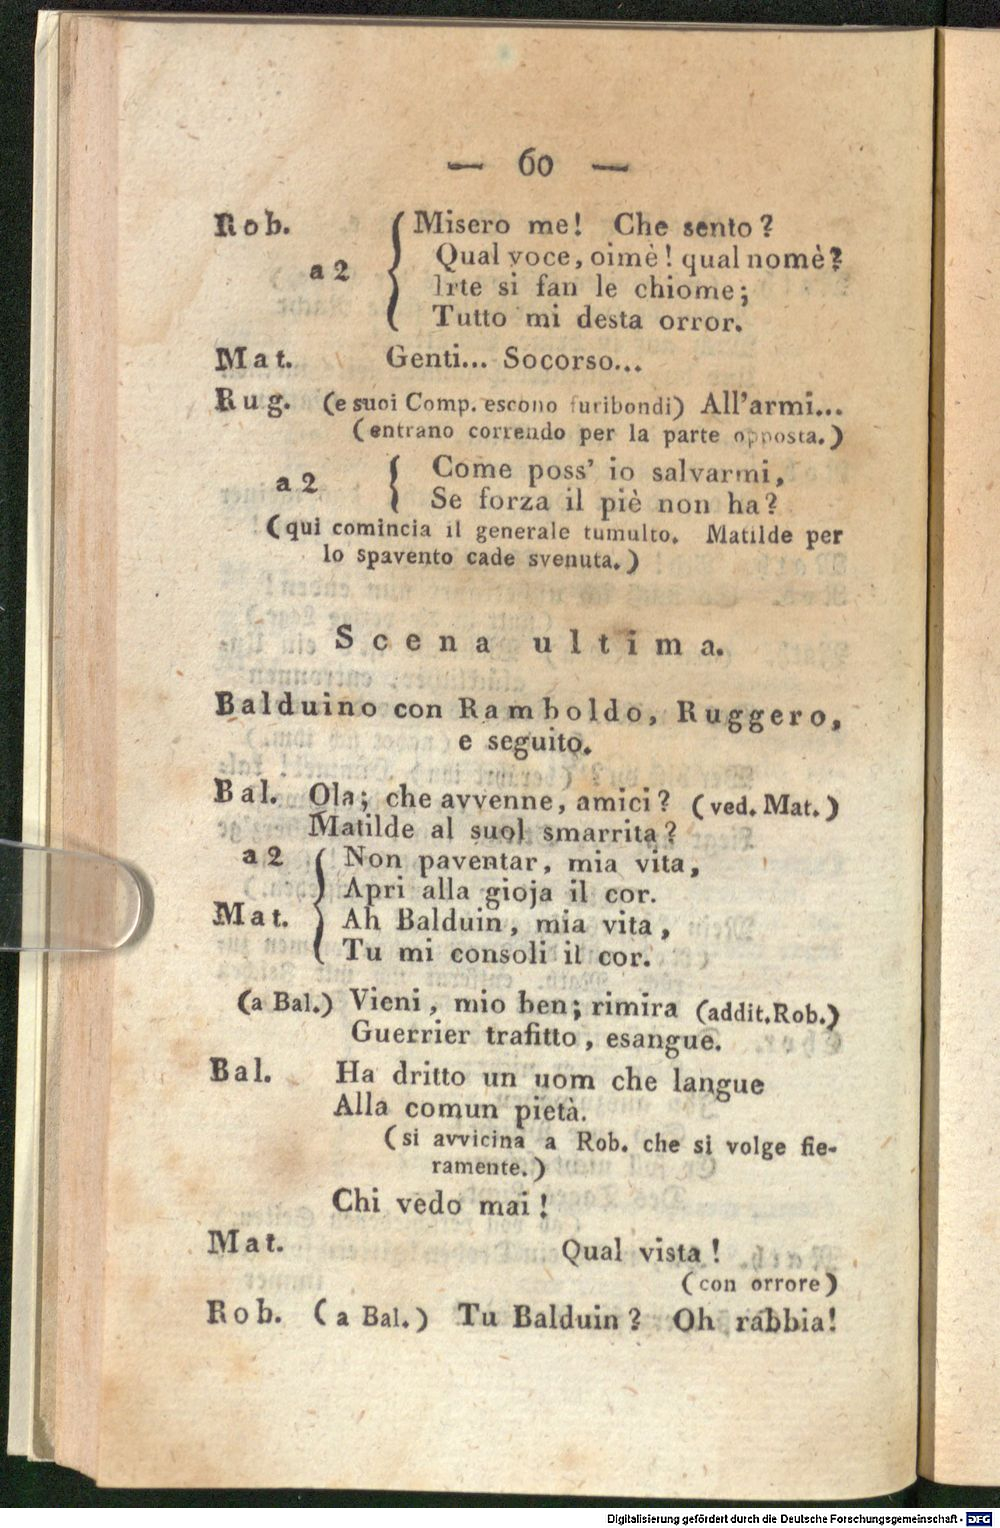 — 60 —
Rob. Misero me! Che sento?
a 2 Qual voce, oimè! qual nomè?
Irte si fan le chiome;
Tutto mi desta orror.
Mat. Genti... Socorso...
Rug. (e suoi Comp. escono furibondi) All'armi...
(entrano correndo per la parte opposta.)
a 2 Come poss' io salvarmi,
Se forza il piè non ha?
(qui comincia il generale tumulto. Matilde per
lo spavento cade svenuta.)
Scena ultima.
Balduino con Ramboldo, Ruggero,
e seguito.
Bal. Ola; che avvenne, amici? (ved. Mat.)
Matilde al suol smarrita?
a 2 Non paventar, mia vita,
Apri alla gioja il cor.
Mat. Ah Balduin, mia vita,
Tu mi consoli il cor.
(a Bal.) Vieni, mio ben; rimira (addit. Rob.)
Guerrier trafitto, esangue.
Bal. Ha dritto un uom che langue
Alla comun pietà.
(si avvicina a Rob. che si volge fie-
ramente.)
Chi vedo mai!
Mat. Qual vista!
(con orrore)
Rob. (a Bal.) Tu Balduin? Oh rabbia!
Digitalisierung gefördert durch die Deutsche Forschungsgemeinschaft - DFG